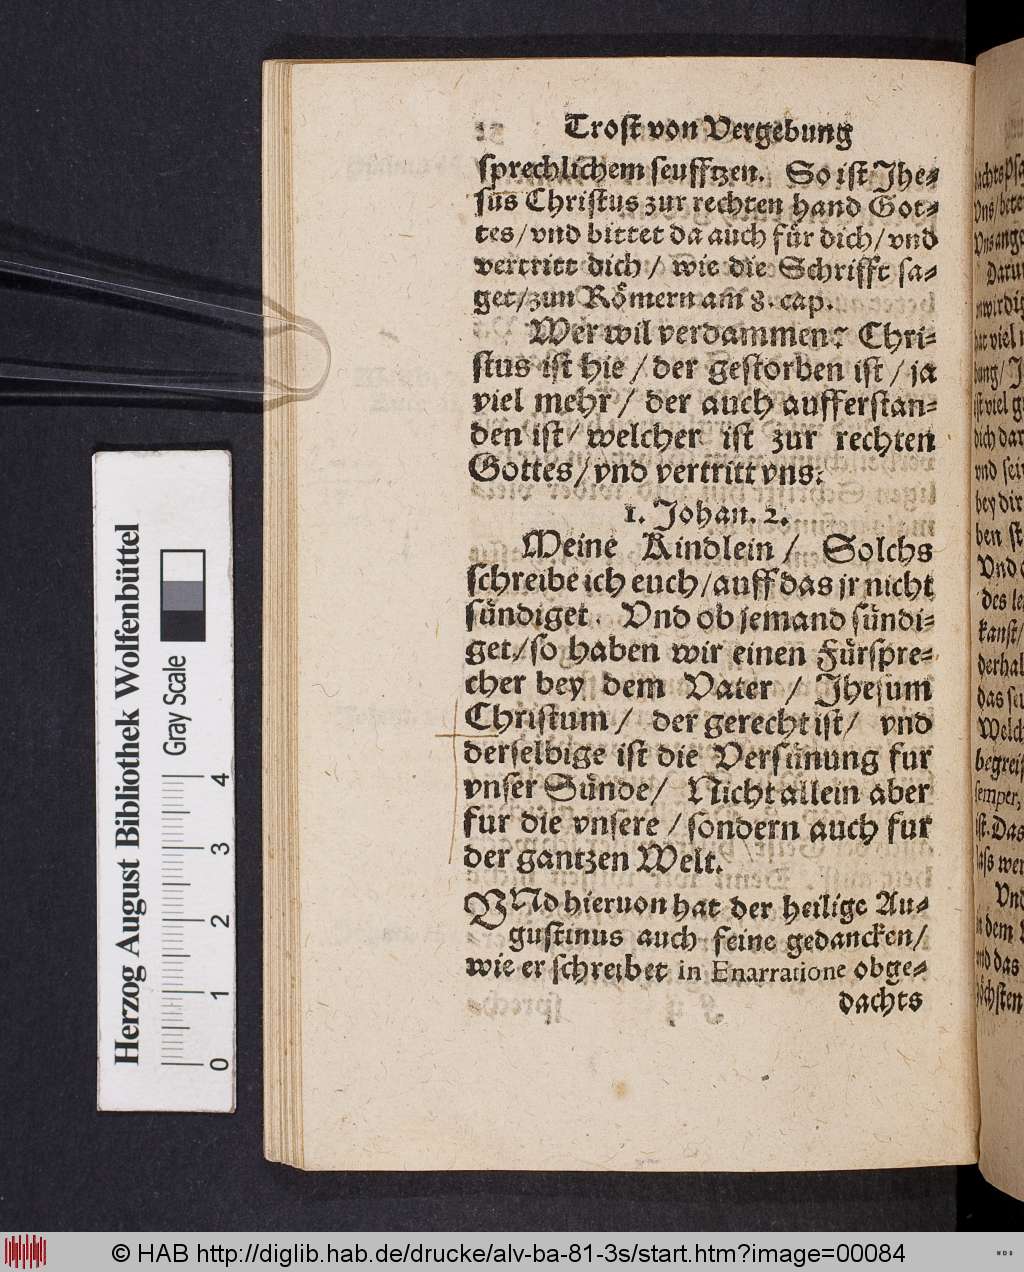 Trost von Vergebung
sprechlichem seufftzen. So ist Jhe-
sus Christus zur rechten hand Got-
tes/ vnd bittet da auch für dich/ vnd
vertritt dich/ wie die Schrifft sa-
get/ zun Römern am 8. cap.
Wer wil verdammen? Chri-
stus ist hie/ der gestorben ist/ ja
viel mehr/ der auch aufferstan-
den ist/ welcher ist zur rechten
Gottes/ vnd vertritt vns.
1. Johan. 2.
Meine Kindlein/ Solchs
schreibe ich euch/ auff das jr nicht
sündiget. Vnd ob jemand sündi-
get/ so haben wir einen Fürspre-
cher bey dem Vater/ Jhesum
Christum/ der gerecht ist/ vnd
derselbige ist die Versünung fur
vnser Sünde/ Nicht allein aber
fur die vnsere/ sondern auch fur
der gantzen Welt.
VNd hieruon hat der heilige Au-
gustinus auch feine gedancken/
wie er schreibet in Enarratione obge-
dachts
Herzog August Bibliothek Wolfenbüttel
Gray Scale
0 1 2 3 4
© HAB http://diglib.hab.de/drucke/alv-ba-81-3s/start.htm?image=00084